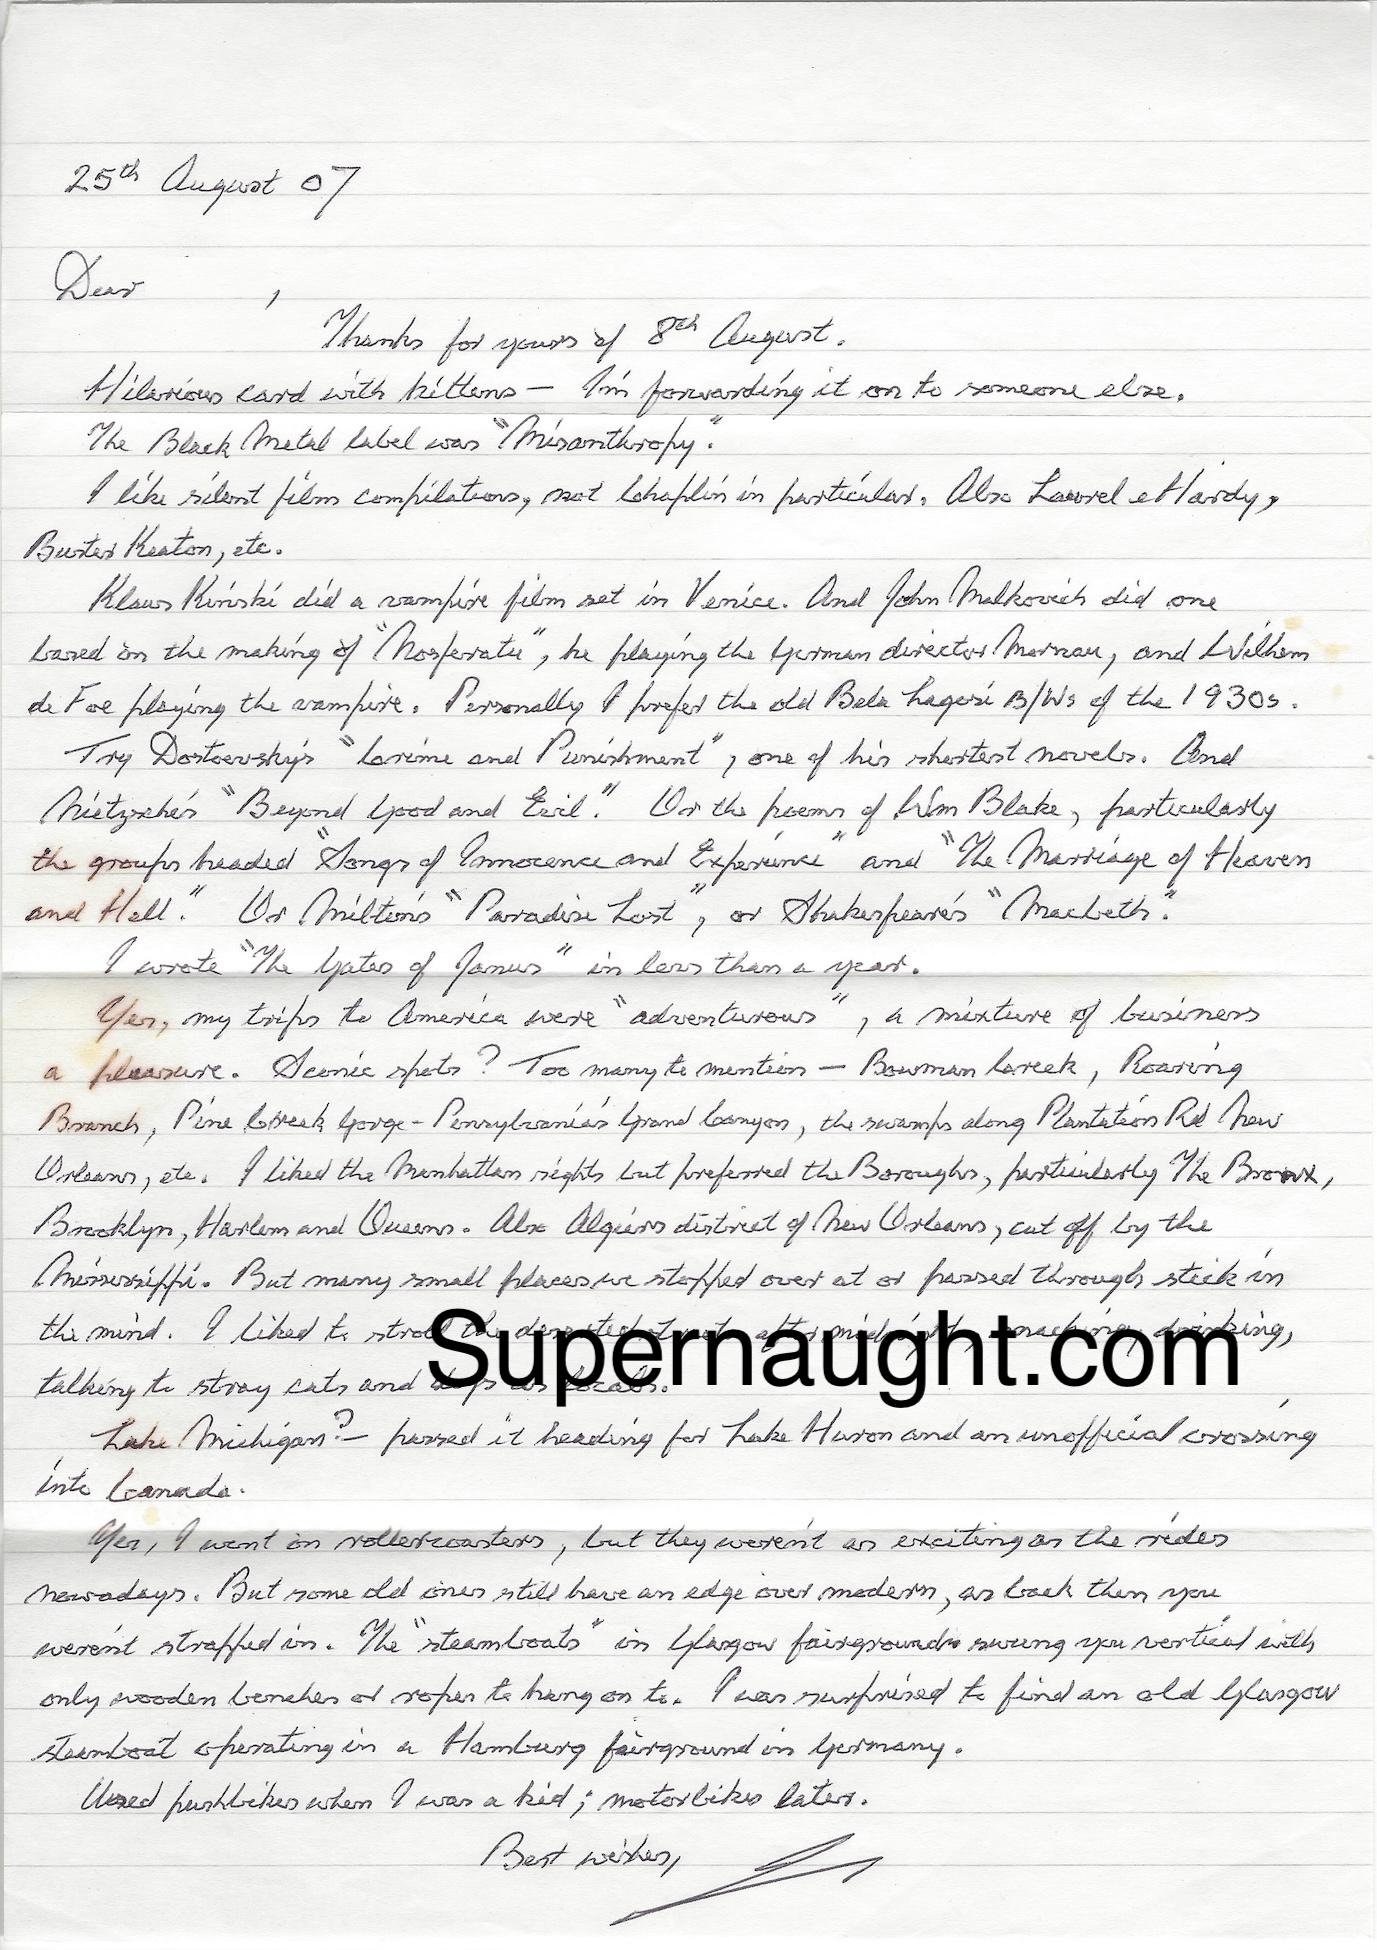 25th August 07
Dear ,
Thanks for yours of 8th August.
Hilarious card with kittens — I'm forwarding it on to someone else.
The Black Metal label was "Misanthropy".
I like silent film compilations, not Chaplin in particular. Also Laurel & Hardy,
Buster Keaton, etc.
Klaus Kinski did a vampire film set in Venice. And John Malkovich did one
based on the making of "Nosferatu", he playing the German director Murnau, and Wilhem
de Foe playing the vampire. Personally I prefer the old Bela Lagosi B/Ws of the 1930s.
Try Dostoevsky's "Crime and Punishment", one of his shortest novels. And
Nietzsche's "Beyond Good and Evil". Or the poems of Wm Blake, particularly
the groups headed "Songs of Innocence and Experience" and "The Marriage of Heaven
and Hell." Or Milton's "Paradise Lost", or Shakespeare's "Macbeth".
I wrote "The Gates of Janus" in less than a year.
Yes, my trips to America were "adventurous", a mixture of business
a pleasure. Scenic spots? Too many to mention — Bowman Creek, Roaring
Branch, Pine Creek Gorge - Pennsylvania's Grand Canyon, the swamps along Plantation Rd New
Orleans, etc. I liked the Manhattan sights but preferred the Boroughs, particularly The Bronx,
Brooklyn, Harlem and Queens. Also Algiers district of New Orleans, cut off by the
Mississippi. But many small places we stopped over at or passed through stick in
the mind. I liked to stroll the deserted streets after midnight, drinking,
talking to stray cats and dogs locals.
Supernaught.com
Lake Michigan? — passed it heading for Lake Huron and an unofficial crossing
into Canada.
Yes, I went on rollercoasters, but they weren't as exciting as the rides
nowadays. But some old ones still have an edge over modern, as back then you
weren't strapped in. The "steamboats" in Glasgow fairgrounds swung you vertical with
only wooden benches or ropes to hang on to. I was surprised to find an old Glasgow
steamboat operating in a Hamburg fairground in Germany.
Used pushbikes when I was a kid; motorbikes later.
Best wishes,